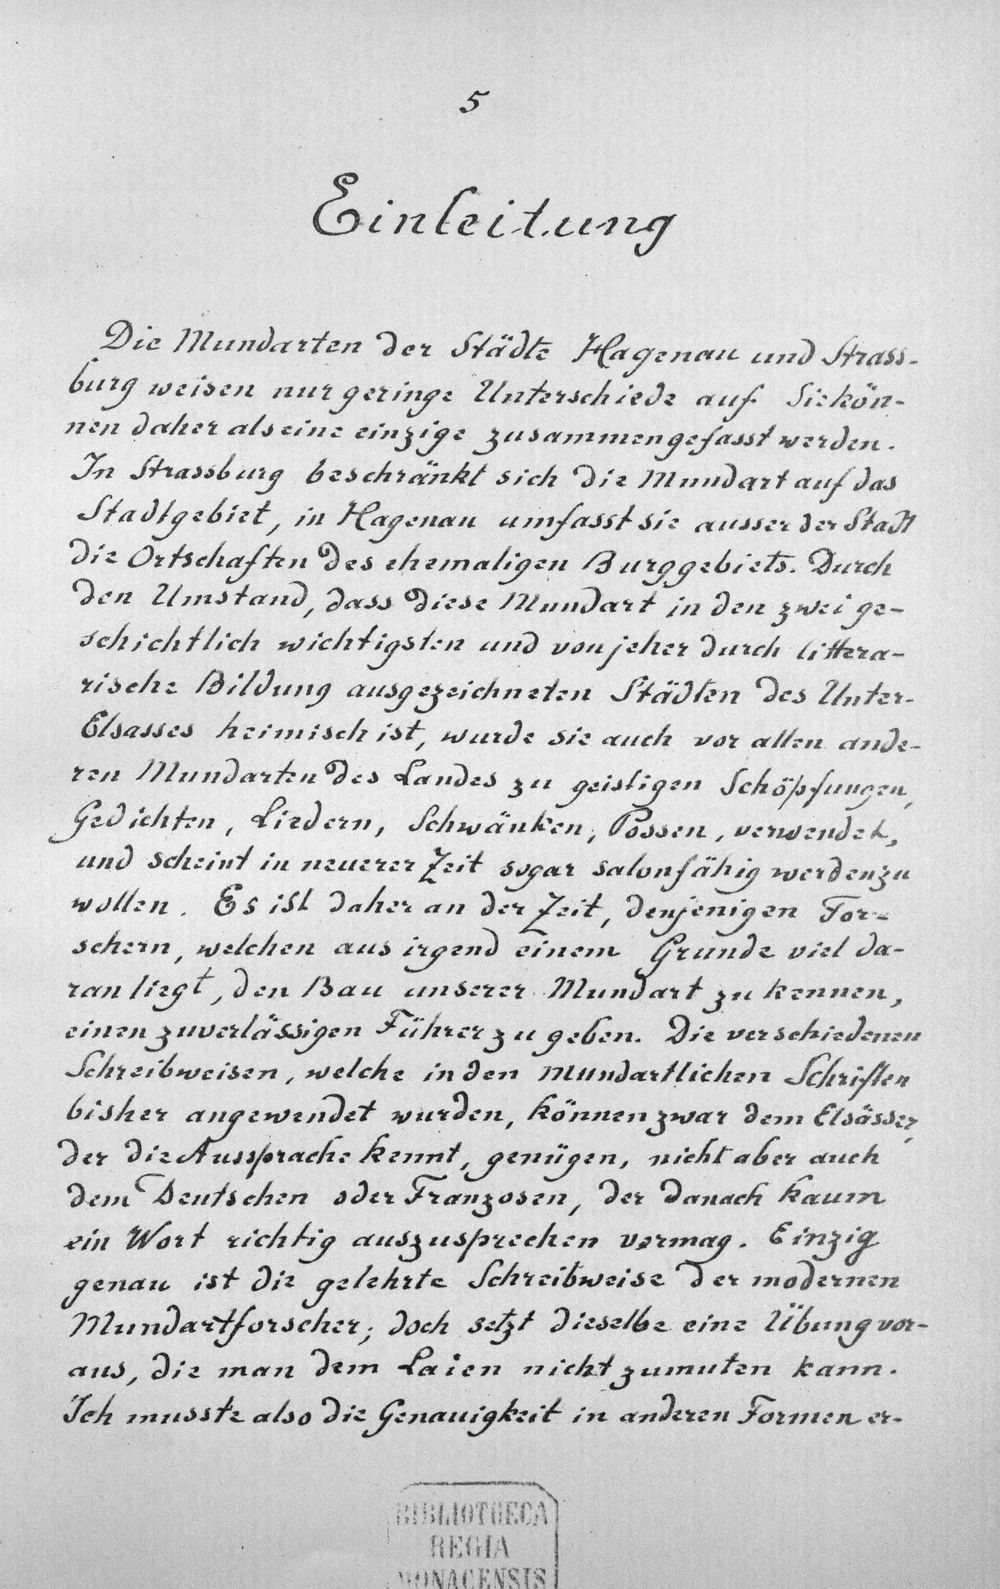 5
Einleitung
Die Mundarten der Städte Hagenau und Strass-
burg weisen nur geringe Unterschiede auf. Sie kön-
nen daher als eine einzige zusammengefasst werden.
In Strassburg beschränkt sich die Mundart auf das
Stadtgebiet, in Hagenau umfasst sie ausser der Stadt
die Ortschaften des ehemaligen Burggebiets. Durch
den Umstand, dass diese Mundart in den zwei ge-
schichtlich wichtigsten und von jeher durch littera-
rische Bildung ausgezeichneten Städten des Unter-
Elsasses heimisch ist, wurde sie auch vor allen ande-
ren Mundarten des Landes zu geistigen Schöpfungen,
Gedichten, Liedern, Schwänken, Possen, verwendet,
und scheint in neuerer Zeit sogar salonfähig werden zu
wollen. Es ist daher an der Zeit, denjenigen For-
schern, welchen aus irgend einem Grunde viel da-
ran liegt, den Bau unserer Mundart zu kennen,
einen zuverlässigen Führer zu geben. Die verschiedenen
Schreibweisen, welche in den mundartlichen Schriften
bisher angewendet wurden, können zwar dem Elsässer,
der die Aussprache kennt, genügen, nicht aber auch
dem Deutschen oder Franzosen, der danach kaum
ein Wort richtig auszusprechen vermag. Einzig
genau ist die gelehrte Schreibweise der modernen
Mundartforscher; doch setzt dieselbe eine Übung vor-
aus, die man dem Laien nicht zumuten kann.
Ich musste also die Genauigkeit in anderen Formen er-
BIBLIOTHECA
REGIA
MONACENSIS